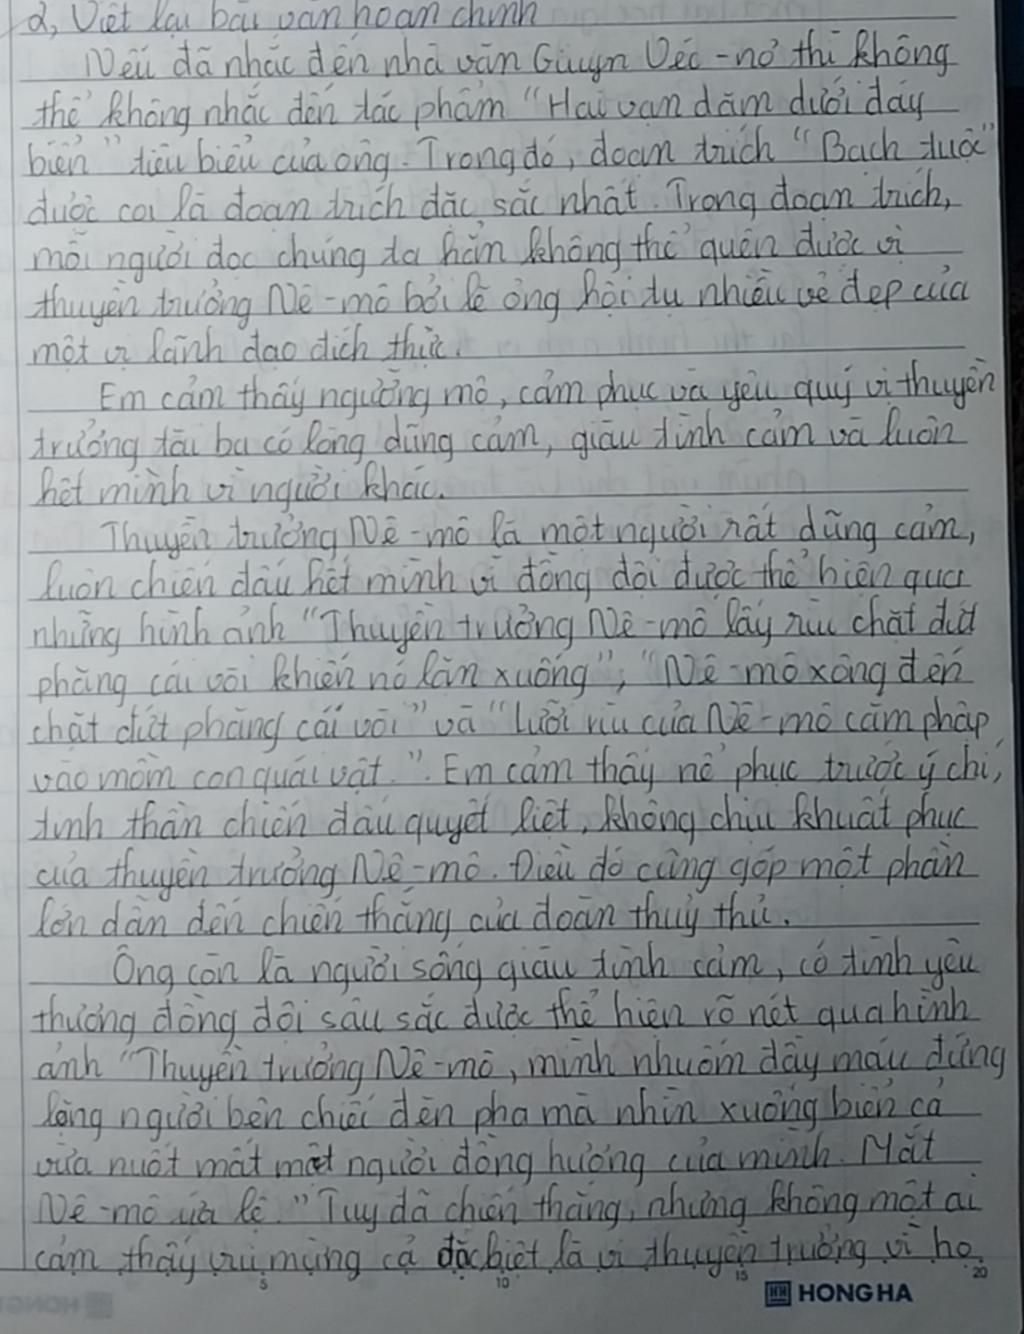 d, Viết lại bài văn hoàn chỉnh
Nếu đã nhắc đến nhà văn Giuyn Véc-nơ thì không
thể không nhắc đến tác phẩm "Hai vạn dặm dưới đáy
biển" tiêu biểu của ông. Trong đó, đoạn trích "Bạch tuộc"
được coi là đoạn trích đặc sắc nhất. Trong đoạn trích,
mỗi người đọc chúng ta hẳn không thể quên được vị
thuyền trưởng Nê-mô bởi lẽ ông hội tụ nhiều vẻ đẹp của
một vị lãnh đạo đích thực.
Em cảm thấy ngưỡng mộ, cảm phục và yêu quý vị thuyền
trưởng tài ba có lòng dũng cảm, giàu tình cảm và luôn
hết mình vì người khác.
Thuyền trưởng Nê-mô là một người rất dũng cảm,
luôn chiến đấu hết mình vì đồng đội được thể hiện qua
những hình ảnh "Thuyền trưởng Nê-mô lấy rìu chặt đứt
phăng cái vòi khiến nó lăn xuống"; "Nê-mô xông đến
chặt đứt phăng cái vòi" và "lưỡi rìu của Nê-mô cắm phập
vào mồm con quái vật.". Em cảm thấy nể phục trước ý chí,
tinh thần chiến đấu quyết liệt, không chịu khuất phục
của thuyền trưởng Nê-mô. Điều đó cũng góp một phần
lớn dẫn đến chiến thắng của đoàn thuỷ thủ.
Ông còn là người sống giàu tình cảm, có tình yêu
thương đồng đội sâu sắc được thể hiện rõ nét qua hình
ảnh "Thuyền trưởng Nê-mô, mình nhuốm đầy máu đứng
lặng người bên chiếc đèn pha mà nhìn xuống biển cả
vừa nuốt mất một người đồng hương của mình. Mắt
Nê-mô ứa lệ." Tuy đã chiến thắng, nhưng không một ai
cảm thấy vui mừng cả đặc biệt là vị thuyền trưởng vì họ
5 10 15 20
HONG HA